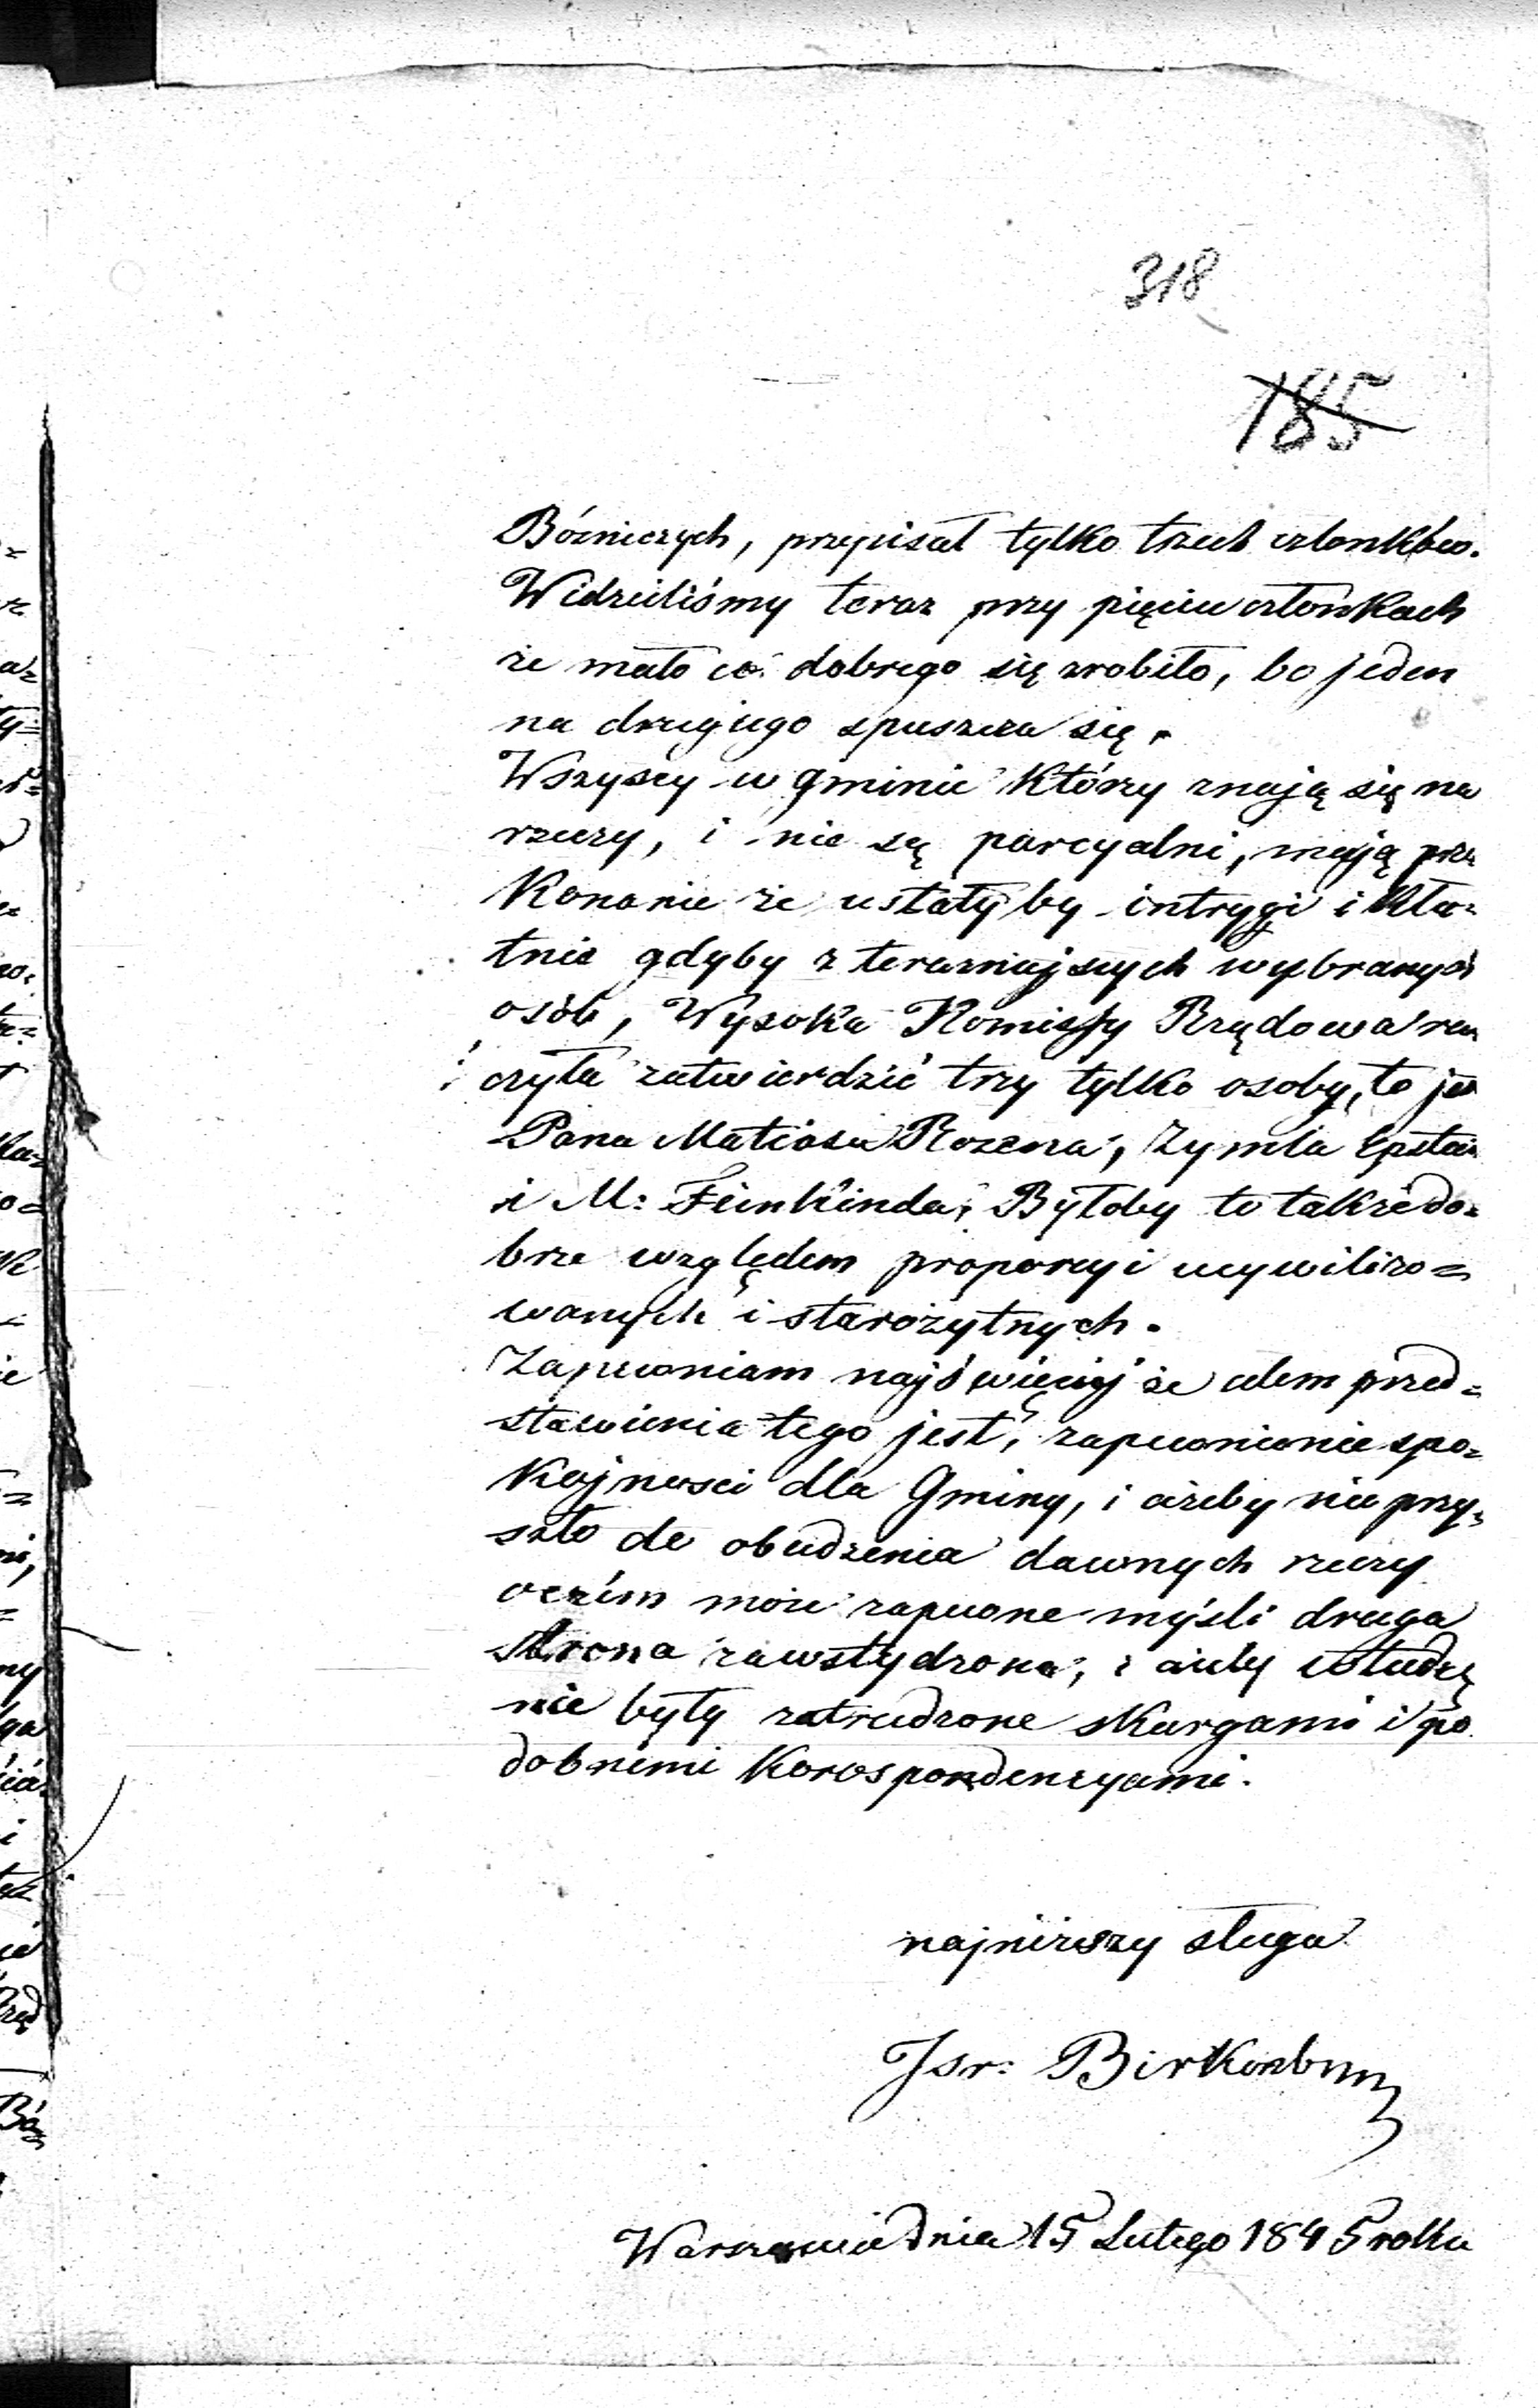 318
185
Bóźniczych, przepisał tylko trzech członków.
Widzieliśmy teraz przy pięciu członkach
że mało co dobrego się zrobiło, bo jeden
na drugiego spuszcza się.
Wszyscy w gminie którzy znają się na
rzeczy, i nie są parcyalni, mają prze
konanie że ustałyby intrygi i kłó=
tnie gdyby z teraźniejszych wybranych
osób, Wysoka Komissy Rządowa ra
czyła zatwierdzić trzy tylko osoby, to jes
Pana Matiasa Rozena, Zymla Epstei
i M: Feinkinda, Byłoby to także do=
brze względem proporcyi ucywilizo=
wanych i starożytnych.
Zapewniam najświęciej że celem przed=
stawienia tego jest, zapewnienie spo=
kojności dla Gminy, i ażeby nie przy=
szło do obudzenia dawnych rzeczy
oczém może zapewne myśli druga
strona zawstydzona, i ażeby władzę
nie były zatrudzone skargami i po
dobnemi korospondencyami.
najniższy sługa
Isr: Birkenbum
Warszawie dnia 15 Lutego 1845 roku